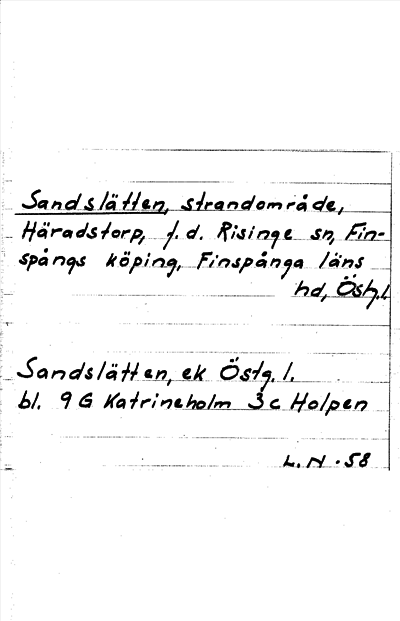 Sandslätten, strandområde,
Häradstorp, f.d. Risinge sn, Fin-
spångs köping, Finspånga läns
hd, Östg.l.
Sandslätten, ek Östg. l.
bl. 9 G Katrineholm 3 c Holpen
L. N - 58